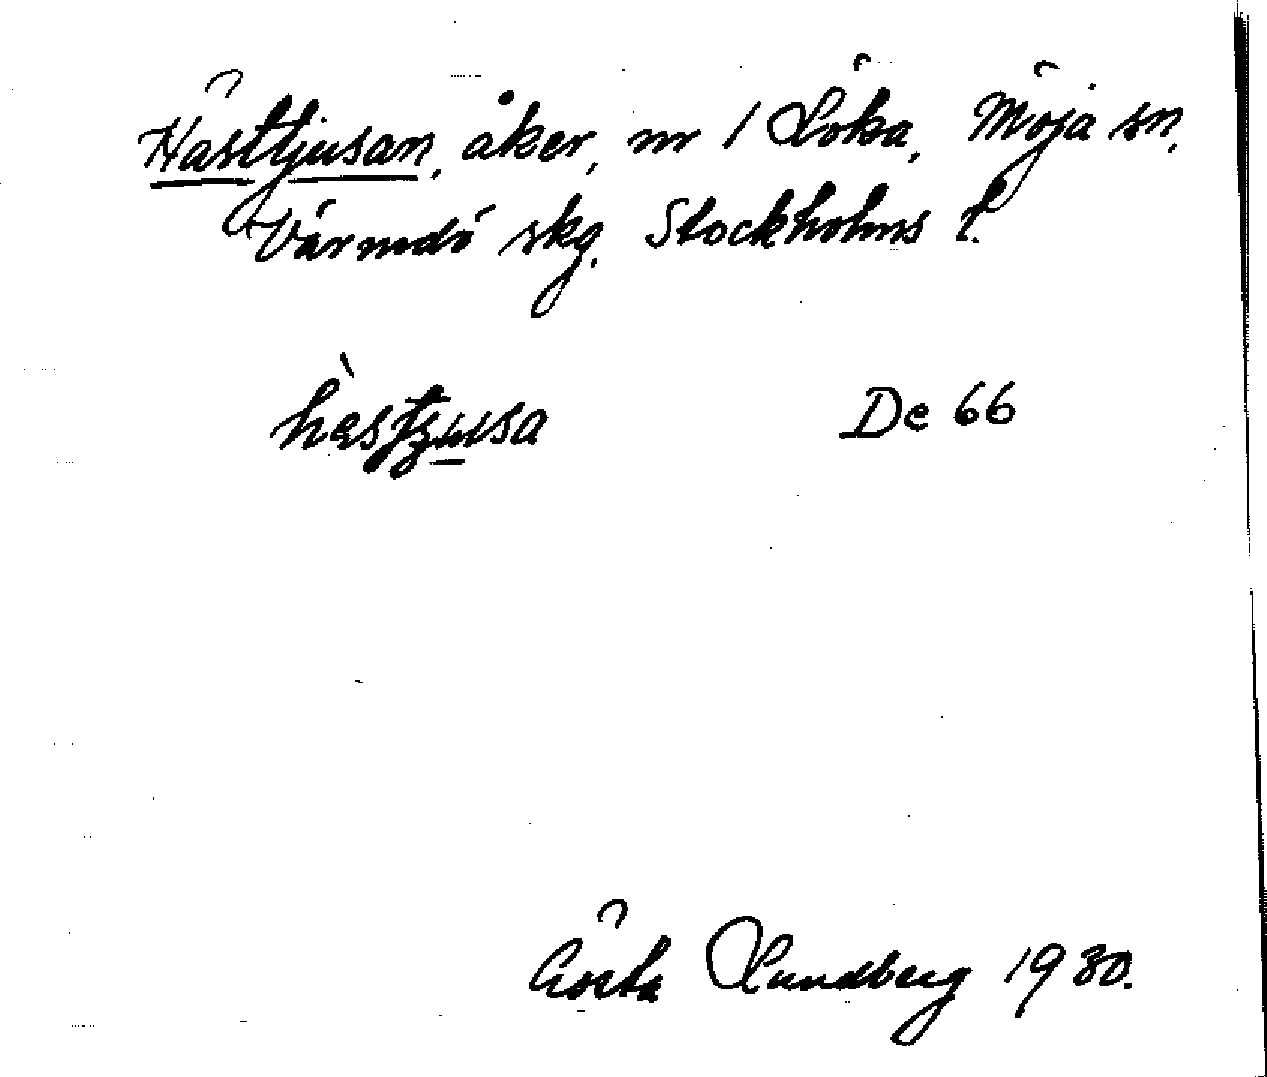 Hästtjusan, åker, nr 1 Löka, Möja sn,
Värmdö skg. Stockholms l.
De 66
Gösta Lundberg 1930.